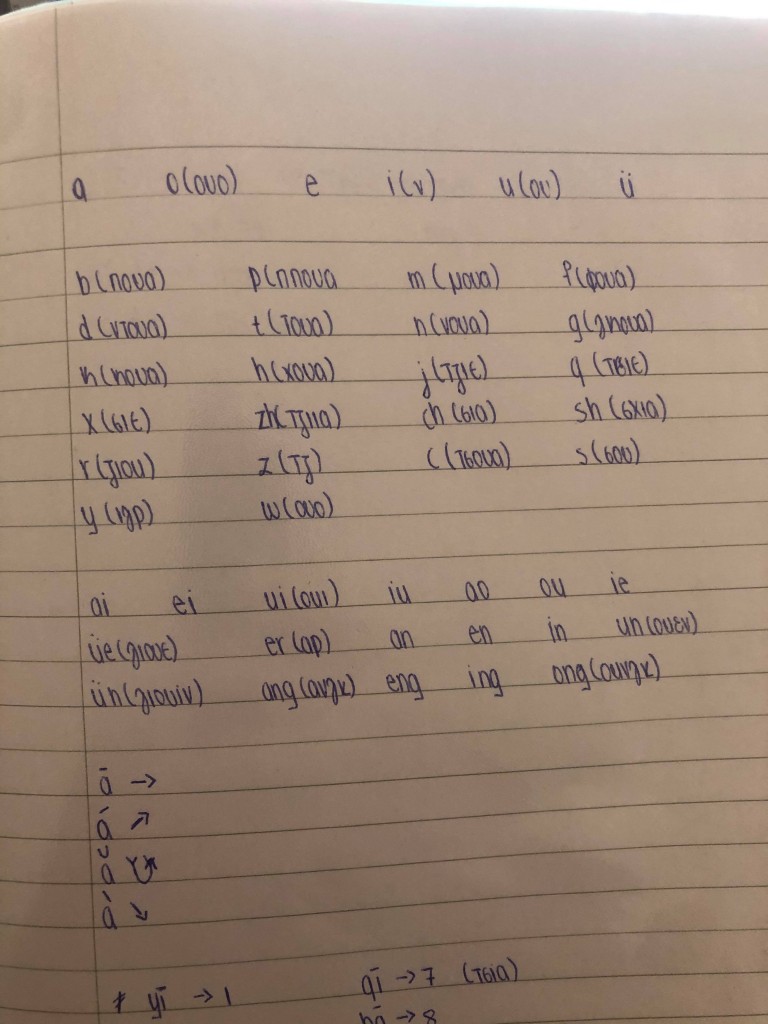 a ο(ουο) e i(ν) u(ου) ü
b(πουα) p(ππουα m(μουα) f(φουα)
d(ντουα) t(τουα) n(νουα) g(γπουα)
k(πουα) h(χουα) j(τζιε) q(τσιε)
x(σιε) zh(τζιια) ch(σια) sh(σχια)
r(ζιου) z(τζ) c(τσουα) s(σου)
y(ιγρ) w(ουο)
ai ei ui(ουι) iu ao ou ie
üe(γιουε) er(αρ) an en in un(ουεν)
ün(γιουίν) ang(ανγκ) eng ing ong(ουνγκ)
ā →
á ↗
ǎ
à ↘
* yī → 1 qī → 7 (τσία)
bā → 8